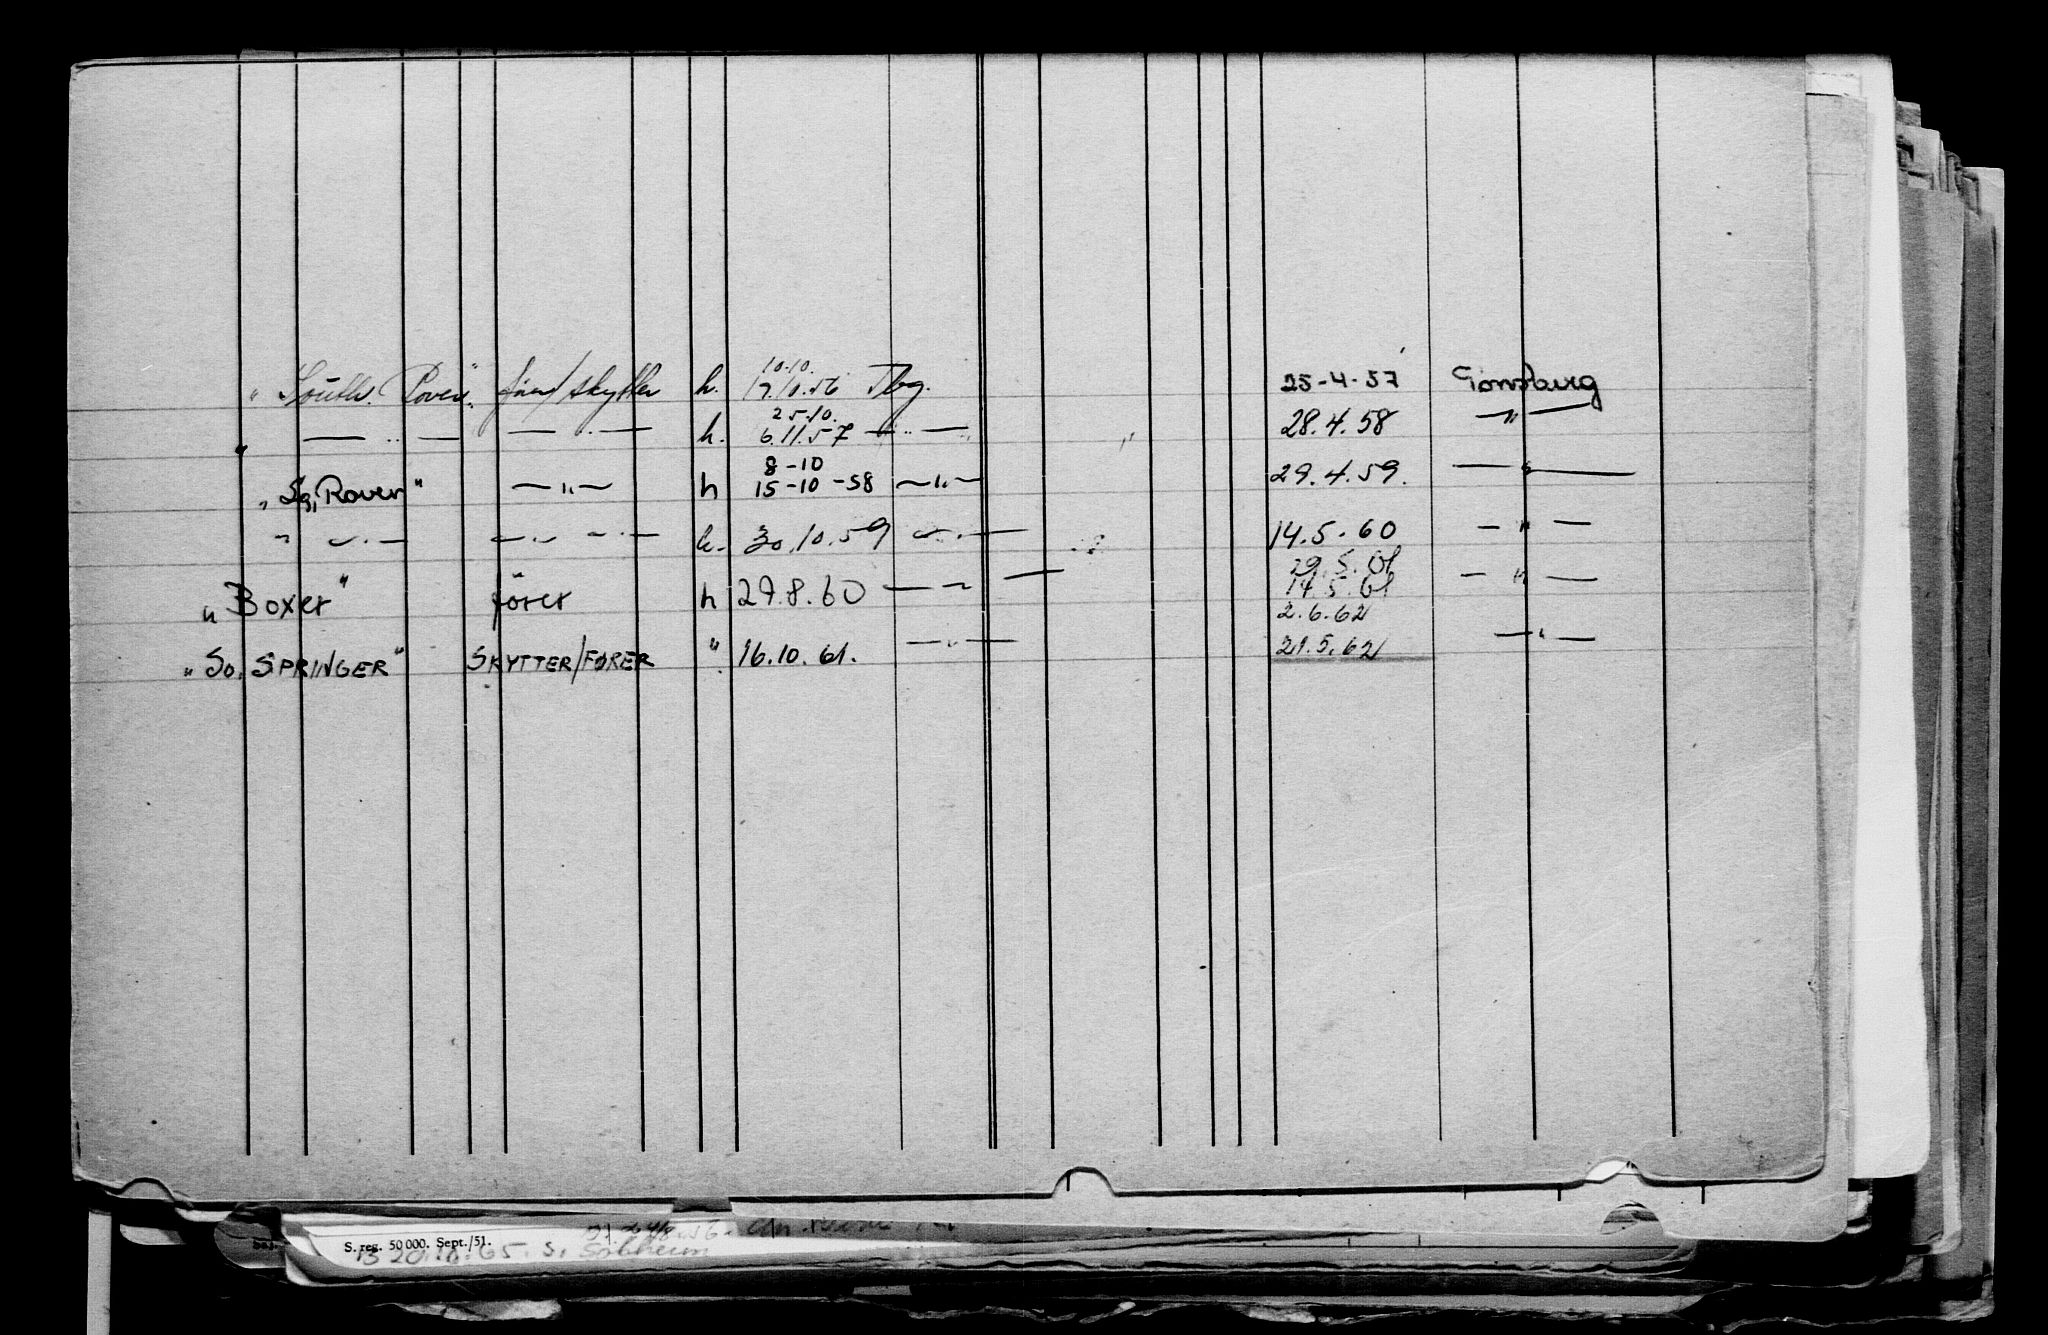 10.10.
"South. Rover" før/skytter h. 17.10.56 Tbg. 25-4-57 Tønsberg
25.10.
" — " — — " — h. 6.11.57 — " — 28.4.58 — " —
8-10
"So, Rover" — " — h 15-10-58 — " — 29.4.59. — " —
" — " — — " — — " — h. 30.10.59 — " — 14.5.60 — " —
29.5.61
"Boxer" fører h 29.8.60 — " — 14.5.61 — " —
2.6.62
"So. SPRINGER" SKYTTER/FØRER " 16.10.61. — " — 21.5.62 — " —
S. reg. 50 000. Sept./51.